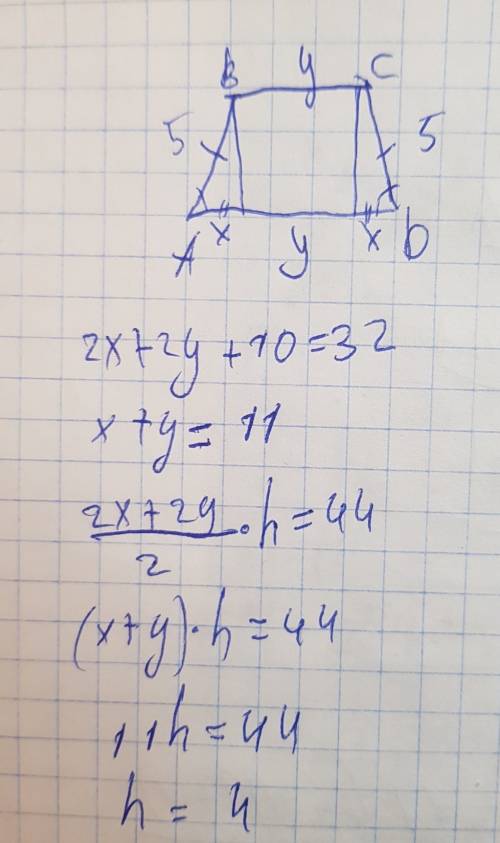 B y C
5 5
A x y x D
2x+2y+10=32
x+y=11
(2x+2y)/2·h=44
(x+y)·h=44
11h=44
h=4